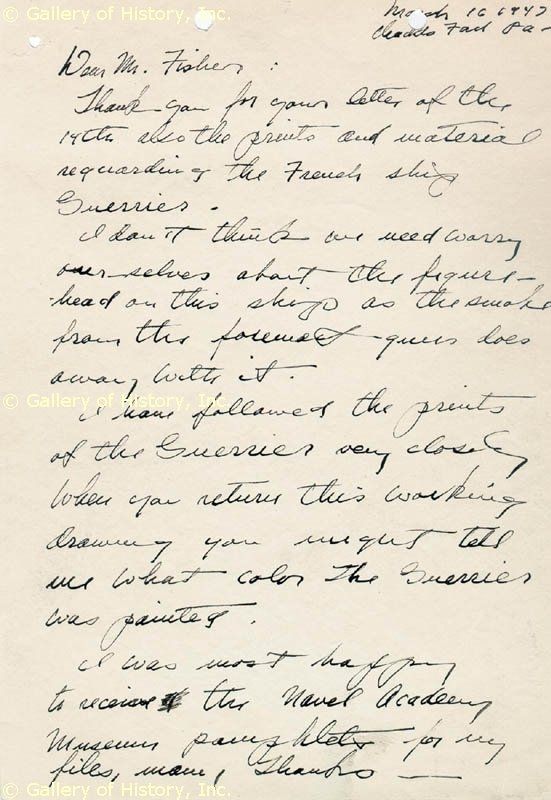 © Gallery of History, Inc.
March 16 1942
Chadds Ford Pa -
Dear Mr. Fisher:
Thank you for your letter of the
14th also the prints and material
reguarding the French ship
Guerrier.
I don't think we need worry
our-selves about the figure-
head on this ship as the smoke
from the foremost guns does
away with it.
© Gallery of History, Inc.
I have followed the prints
of the Guerrier very closely
When you return this working
drawing you might tell
me what color the Guerrier
was painted.
I was most happy
to receive the Navel Academy
Museum pamphlets for my
files, many thanks —
© Gallery of History, Inc.